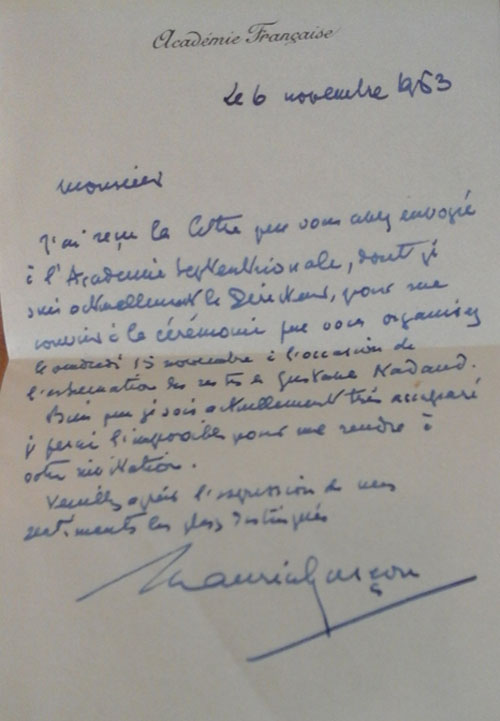 Académie Française
Le 6 novembre 1963
Monsieur
J'ai reçu la lettre que vous avez envoyée
à l'Académie septentrionale, dont je
suis actuellement le Directeur, pour me
convier à la cérémonie que vous organisez
le vendredi 15 novembre à l'occasion de
l'inhumation des restes de Gustave Nadaud.
Bien que je sois actuellement très accaparé
je ferai l'impossible pour me rendre à
votre invitation.
Veuillez agréer l'expression de mes
sentiments les plus distingués
Maurice Garçon